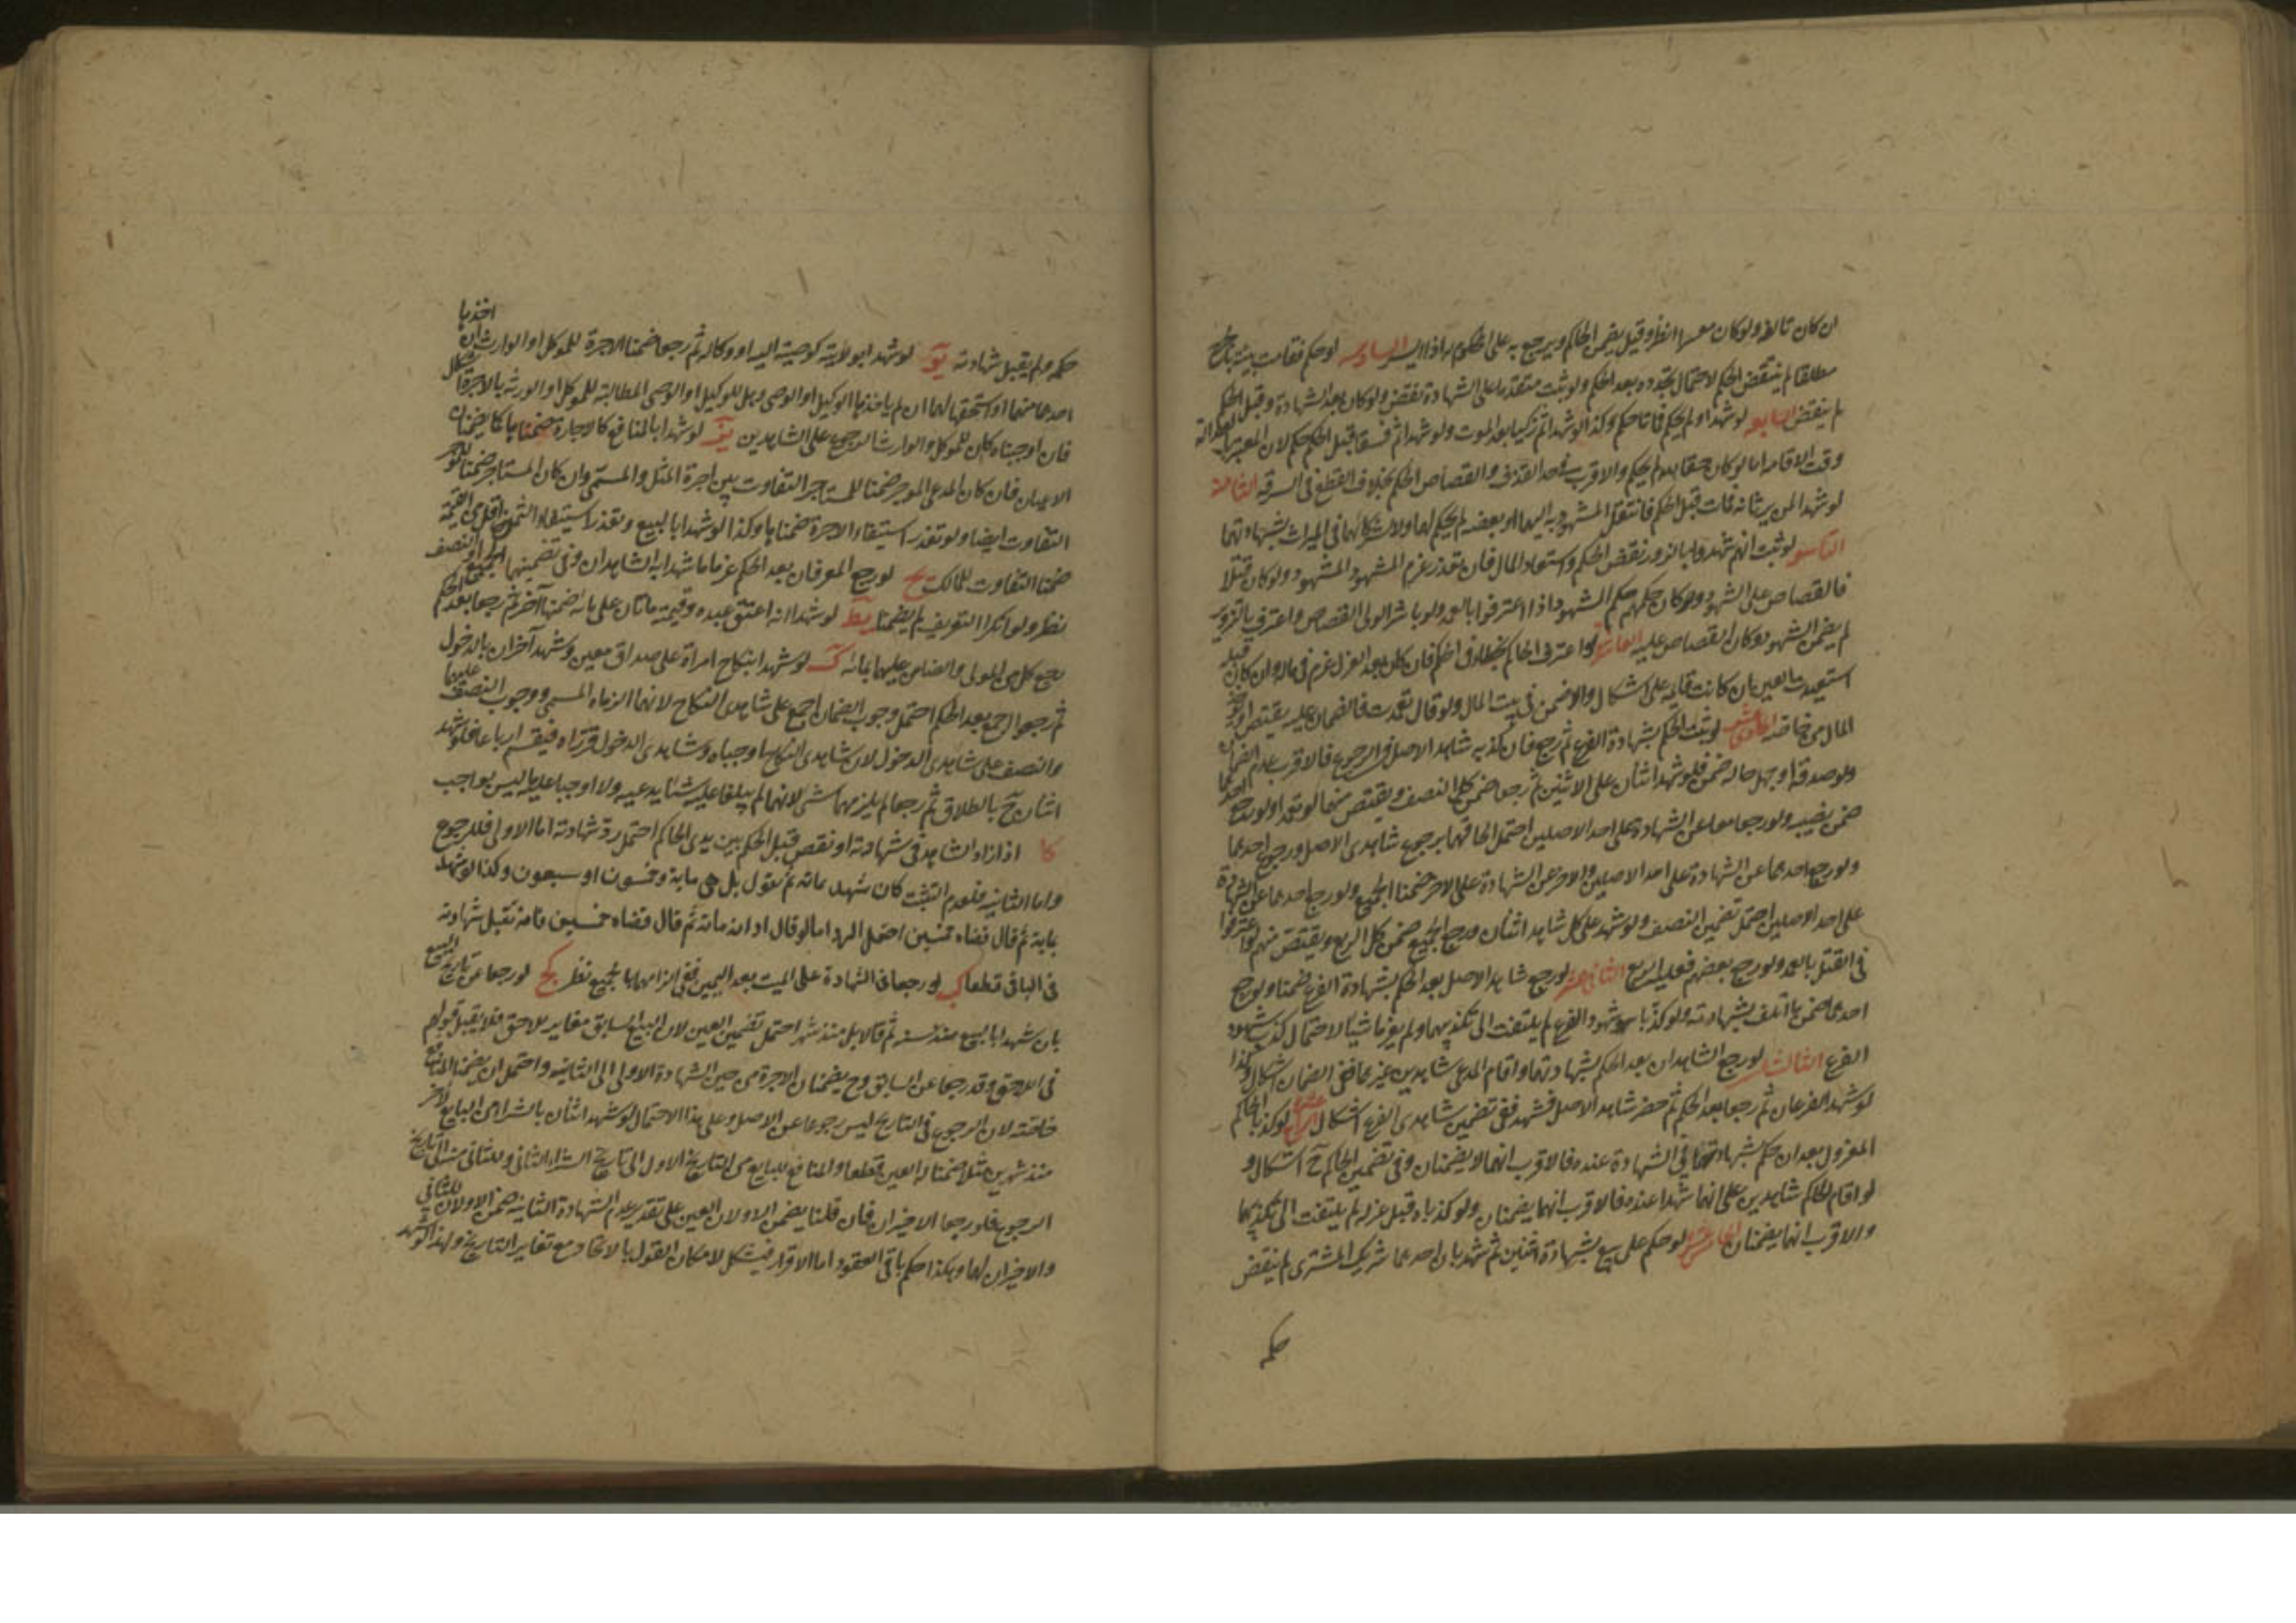 ان كان تالفا ولو كان معسرا انظر وقيل يضمن الحاكم ويرجع به على المحكوم له اذا ايسر السادسة لو حكم فقامت بينة بالجرح
مطلقا لم ينتقض الحكم لاحتمال تجدده بعد الحكم ولو ثبت متقدما على الشهادة نقض ولو كان بعد الشهادة وقبل الحكم
لم ينقض السابعة لو شهدا ولم يحكم فماتا حكم وكذا لو شهدا ثم زكيا بعد الموت ولو شهدا ثم فسقا قبل الحكم حكم لان المعتبر بالعدالة
وقت الاقامة اما لو كان حقا لله لم يحكم والاقرب في حد القذف والقصاص الحكم بخلاف القطع في السرقة الثامنة
لو شهدا لمن يرثانه فمات قبل الحكم فانتقل المشهود به اليهما او بعضه لم يحكم لهما ولا لشركائهما في الميراث بشهادتهما
التاسعة لو ثبت انهم شهدوا بالزور نقض الحكم واستعاد المال فان تعذر غرم الشهود المشهود ولو كان قتلا
فالقصاص على الشهود وكان حكمهم حكم الشهود اذا اعترفوا بالعمد ولو باشر الولي القصاص واعترف بالتزوير
لم يضمن الشهود وكان القصاص عليه العاشرة لو اعترف الحاكم بخطائه في الحكم فان كان بعد العزل غرم في ماله وان كان قبله
استعيدت العين ان كانت قائمة على اشكال والا ضمن في بيت المال ولو قال تعمدت فالضمان عليه يقتص او يؤخذ
المال من خاصته الحادي عشر لو ثبت الحكم بشهادة الفرع ثم رجع فان كذبه شاهد الاصل في الرجوع فالاقرب عدم الضمان
ولو صدقه او جهل حاله ضمن فلو شهد اثنان على الاثنين ثم رجعا ضمن كل النصف ويقتص منهما لو تعمدا ولو رجع احدهما
ضمن نصيبه ولو رجعا معا عن الشهادة على احد الاصلين احتمل الحاقهما برجوع شاهدي الاصل ورجوع احدهما
ولو رجع احدهما عن الشهادة على احد الاصلين والاخر عن الشهادة على الاخر ضمنا الجميع ولو رجع احدهما عن الشهادة
على احد الاصلين احتمل تضمين النصف ولو شهد على كل شاهد اثنان ورجع الجميع ضمن كل الربع ويقتص منهم لو اعترفوا
في القتل بالعمد ولو رجع بعضهم فعليه الربع الثاني عشر لو رجع شاهد الاصل بعد الحكم بشهادة الفرع ضمنا ولو رجع
احدهما ضمن ما اتلف بشهادته ولو كذبا شهود الفرع لم يلتفت الى تكذيبهما ولم يغرما شيئا لاحتمال كذب شهود
الفرع الثالث عشر لو رجع الشاهدان بعد الحكم بشهادتهما واقام المدعي شاهدين غيرهما ففي الضمان اشكال وكذا
لو شهد الفرعان ثم رجعا بعد الحكم ثم حضر شاهد الاصل فشهد ففي تضمين شاهدي الفرع اشكال الرابع عشر لو كذبا الحاكم
المعزول بعد ان حكم بشهادتهما في الشهادة عنده فالاقرب انهما لا يضمنان وفي تضمين الحاكم ح اشكال و
لو اقام الحاكم شاهدين على انهما شهدا عنده فالاقرب انهما يضمنان ولو كذباه قبل عزله لم يلتفت الى تكذيبهما
والاقرب انهما يضمنان الخامس عشر لو حكم على بيع بشهادة اثنين ثم شهد بان احدهما شريك المشتري لم ينقض
حكمه
حكمه ولم يقبل شهادته يو لو شهدا بولاية كوصية اليه او وكالة ثم رجعا ضمنا الاجرة للموكل او الوارث ان اخذها
احدهما منهما او استحقها لهما ان لم ياخذها الوكيل او الوصي وهل للوكيل او الوصي المطالبة للموكل او الورثة بالاجرة اشكال
فان اوجبناه كان للموكل والوارث الرجوع على الشاهدين يز لو شهدا بالمنافع كالاجارة ضمناها كما يضمنان
الاعيان فان كان المدعي الموجر ضمنا للمستاجر التفاوت بين اجرة المثل والمسمى وان كان المستاجر ضمنا للموجر
التفاوت ايضا ولو تعذر استيفاء الاجرة ضمناها وكذا لو شهدا بالبيع وتعذر استيفاء الثمن وهو اقل من القيمة
ضمنا التفاوت للمالك يح لو رجع المعرفان بعد الحكم غرما ما شهد به الشاهدان وفي تضمينهما الجميع او النصف
نظر ولو انكرا التعريف لم يضمنا يط لو شهدا انه اعتق عبده وقيمته مائتان على مائة ضمنها آخر ثم رجعا بعد الحكم
رجع كل من المولى والضامن عليهما بمائة ك لو شهدا بنكاح امراة على صداق معين وشهد آخران بالدخول
ثم رجعوا اجمع بعد الحكم احتمل وجوب الضمان اجمع على شاهدي النكاح لانهما الزماه المسمى ووجوب النصف عليهما
والنصف على شاهدي الدخول لان شاهدي النكاح اوجباه وشاهدي الدخول قرراه فيقسم ارباعا فلو شهد
اثنان ح بالطلاق ثم رجعا لم يلزمهما شي لانهما لم يتلفا عليه شيئا يدعيه ولا اوجبا عليه ما ليس بواجب
كا اذا زاد الشاهد في شهادته او نقص قبل الحكم بين يدي الحاكم احتمل رد شهادته اما الاولى فللرجوع
واما الثانية فلعدم التثبت كان شهد بمائة ثم يقول بل هي ماية وخمسون او سبعون وكذا لو شهد
بماية ثم قال قضاه خمسين احتمل الرد اما لو قال ادانه مائة ثم قال قضاه خمسين فانه تقبل شهادته
في الباقي قطعا كب لو رجعا في الشهادة على الميت بعد اليمين ففي الزامهما بالجميع نظر كج لو رجعا عن تاريخ البيع
بان شهدا بالبيع منذ سنة ثم قالا بل منذ شهر احتمل تضمين العين لان البيع السابق مغاير للاحق فلا يقبل قولهم
في اللاحق وقد رجعا عن السابق وح يضمنان الاجرة من حين الشهادة الاولى الى الثانية واحتمل ان يضمنا المنافع
خاصة لان الرجوع في التاريخ ليس رجوعا عن الاصل وعلى هذا الاحتمال لو شهد اثنان بالشراء من البايع لآخر
منذ شهرين مثلا ضمنا له العين قطعا والمنافع للبايع من التاريخ الاول الى تاريخ الشراء الثاني وللثاني منه الى تاريخ
الرجوع فلو رجعا الاخيران فان قلنا يضمن الاولان العين على تقدير عدم الشهادة الثانية ضمن الاولان للثاني
والاخيران لهما وهكذا حكم باقي العقود اما الاقرار فيشكل لامكان القول بالاتحاد مع تغاير التاريخ ولهذا لو شهد